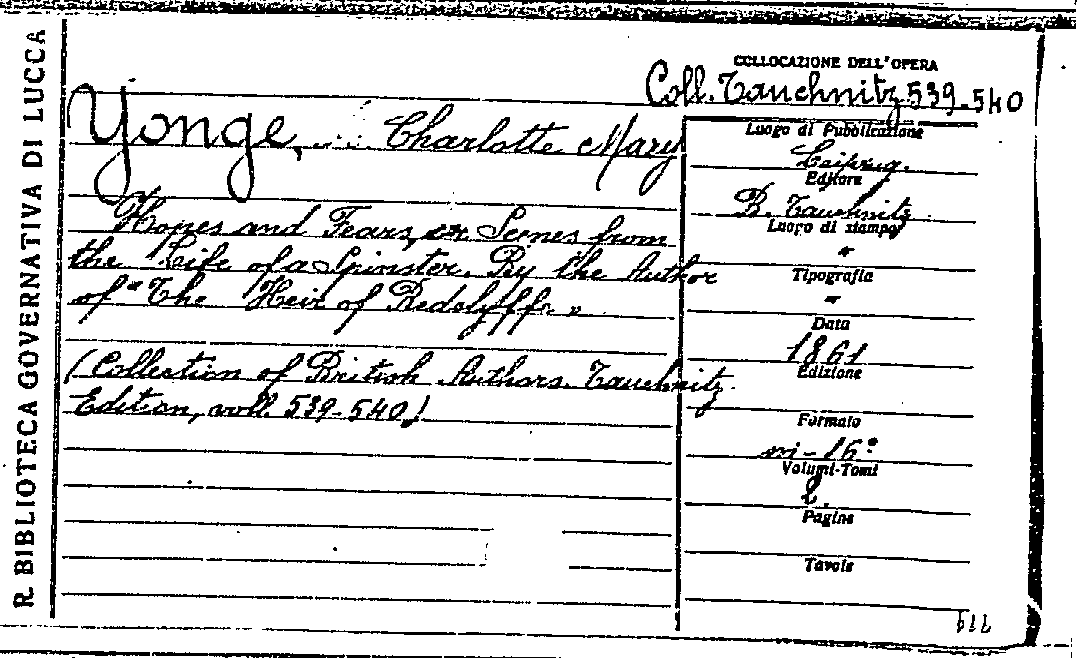 R. BIBLIOTECA GOVERNATIVA DI LUCCA
COLLOCAZIONE DELL'OPERA
Coll. Tauchnitz 539-540
Yonge, Charlotte Mary
Hopes and Fears, or Scenes from
the Life of a Spinster. By the Author
of "The Heir of Redclyffe"
(Collection of British Authors. Tauchnitz
Edition, voll. 539-540)
Luogo di Pubblicazione
Leipzig.
Editore
B. Tauchnitz
Luogo di stampa
"
Tipografia
"
Data
1861
Edizione
Formato
in-16°
Volumi-Tomi
2.
Pagine
Tavole